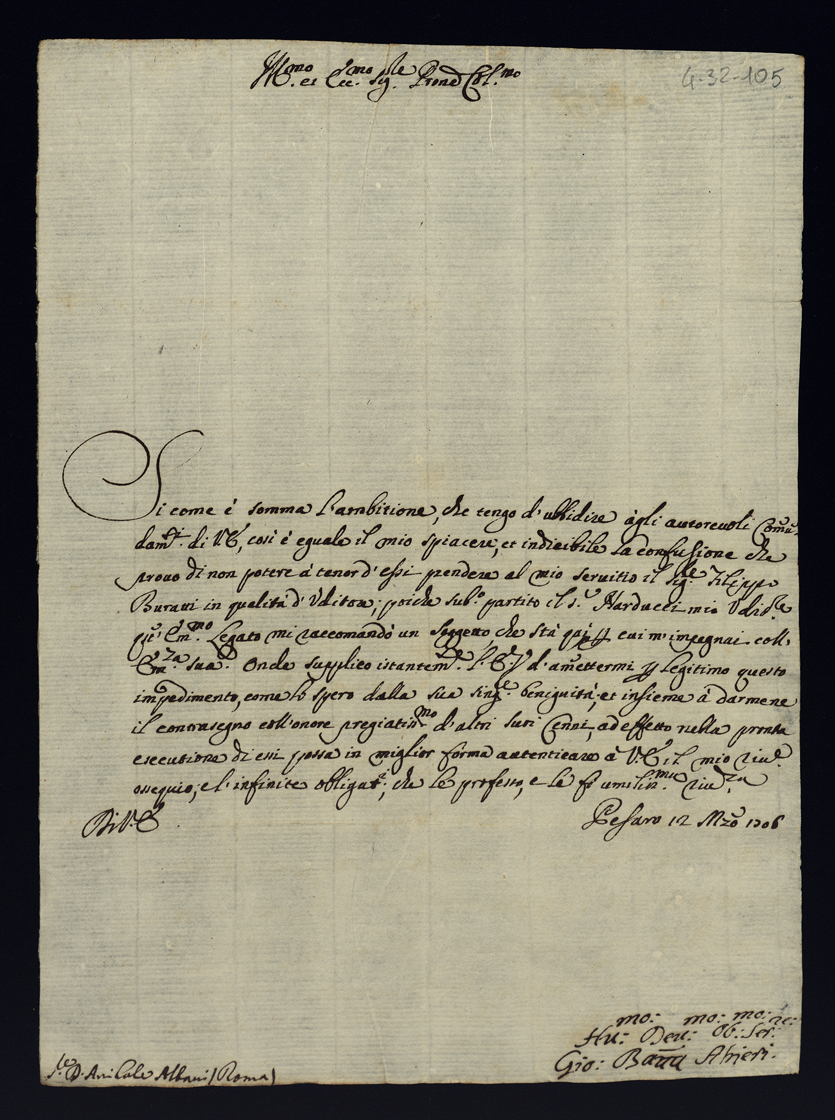 Ill.mo et Ecc.mo Sig.re Prone Col.mo
4-32-105
Si come è somma l'ambitione, che tengo d'ubbidire àgli autorevoli Coman
dam.ti di V.E., cosi è eguale il mio spiacere, et indicibile la confusione che
provo di non potere à tenor d'essi prendere al mio servitio il Sig.re Filippo
Buratti in qualità d'Uditore; poiche sub.o partito il S.r Narducci mio Udit.re
qu.o Em.mo Legato mi raccomandò un Soggetto, che stà quì, p cui m'impegnai coll'
Em.za sua. Onde supplico istantem.te l'E.V. d'amettermi p legitimo questo
impedimento, come lo spero dalla sua sing.re benignità, et insieme à darmene
il contrasegno coll'onore pregiatiss.mo d'altri suoi Cenni, ad effetto nella pronta
esecutione di essi possa in miglior forma autenticare à V.E. il mio riu.e
ossequio, e l'infinite obligat.i, che le professo, e le fò umiliss.ma riu.za
Di V.E.
Pesaro 12 Mzo 1706
Hu.mo: Deu.mo: Ob.mo: Ser.re:
Gio: Batta Alfieri.
S.re D. Anibale Albani (Roma)